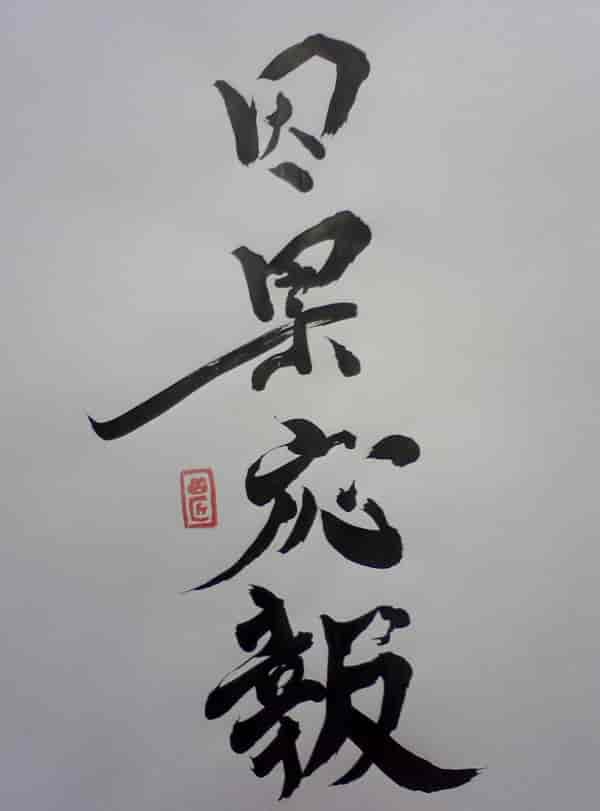 因果応報